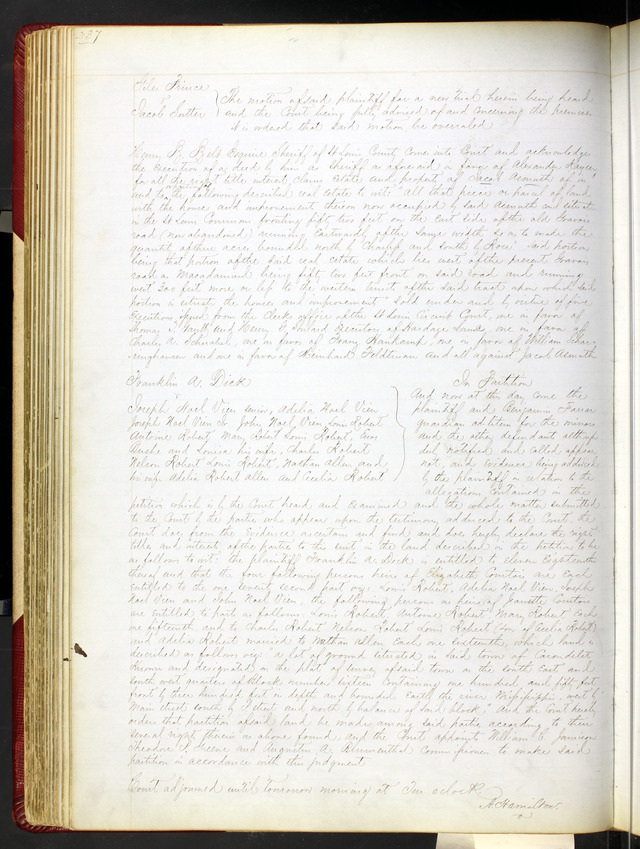 337
Files Prince
vs
Jacob Sutter
The motion of said plaintiff for a new trial herein being heard
and the Court being fully advised of and concerning the Premises
it is ordered that said motion be overruled
Henry B. Belt Esquire Sheriff of St Louis County Comes into Court and acknowledges
the execution of a deed by him as Sheriff as aforesaid in favor of Alexander Kayser
for all the right title interest claim estate and property of Jacob Asmuth of in
and to the following described real estate to wit: "all that piece or parcel of land
with the house and improvements thereon now occupied by said Asmuth and situate
in the St Louis Commons fronting fifty two feet on the east side of the old Gravois
road (now abandoned) running Eastwardly of the same width so as to make the
quantity of three acres bounded north by and south by Rose" said portion
being that portion of the said real estate which lies west of the present Gravois
road a Macadamized being fifty two feet front on said road and running
west 300 feet more or less to the western limit of the said tract upon which said
portion is situate the houses and improvements Sold under and by virtue of five
Executions issued from the Clerks office of the St Louis Circuit Court, one in favor of
Thomas and Henry Executors of Hardage Lane, one in favor of
Charles A. one in favor of Franz one in favor of William
and one in favor of Feldtman and all against Jacob Asmuth
Franklin A. Dick
vs
Joseph Noel Vien senior, Adelia Noel Vien
Joseph Noel Vien Jr John Noel Vien, Louis Robert
Antoine Robert, Mary Robert Louis Robert, Eroy
and Louisa his wife Charles Robert
Nelson Robert Louis Robert, Nathan Allen and
his wife Adelia Robert Allen and Cecilia Robert
In Partition
And now at this day come the
plaintiff and Benjamin Farrar
guardian ad litem for the minors
and the other defendants although
duly notified and called appear
not, and evidence being adduced
by the plaintiff in relation to the
allegations contained in the
petition which is by the Court heard and examined and the whole matter submitted
to the Court by the parties who appear upon the testimony adduced to the Court, the
Court does from the Evidence ascertain and find and doe hereby declare the rights
titles and interest of the parties to this suit in the land described in the petition to be
as follows to wit: the plaintiff Franklin A. Dick is entitled to eleven Eighteenths
thereof and that the four following persons heirs of Elizabeth Courtois are Each
entitled to the one seventy second part viz: Louis Robert, Adelia Noel Vien, Joseph
Noel Vien and John Noel Vien. the following persons as heirs of Janette Courtois
are entitled to parts as follows Louis Robert Antoine Robert Mary Robert Each
one fifteenth and to Charles Robert Nelson Robert Louis Robert (son of Cecilia Robert)
and Adelia Robert married to Nathan Allen. Each one sixtieth which land is
described as follows viz: "a lot of ground situated in said town of Carondelet,
known and designated on the plat of survey of said town as the South East and
South west quarters of Block number sixteen containing one hundred and fifty feet
front by three hundred feet in depth and bounded East by the river Mississippi west by
Main street South by F street and north by balance of said block;" And the Court hereby
orders that partition of said land be made among said parties according to their
several rights therein as above found and the Court appoint William C. Jamison
Theodore P. Greene and Augustus A. Blumenthal Commissioners to make said
partition in accordance with this judgment
Court adjourned until tomorrow morning at Ten oclock
A. Hamilton